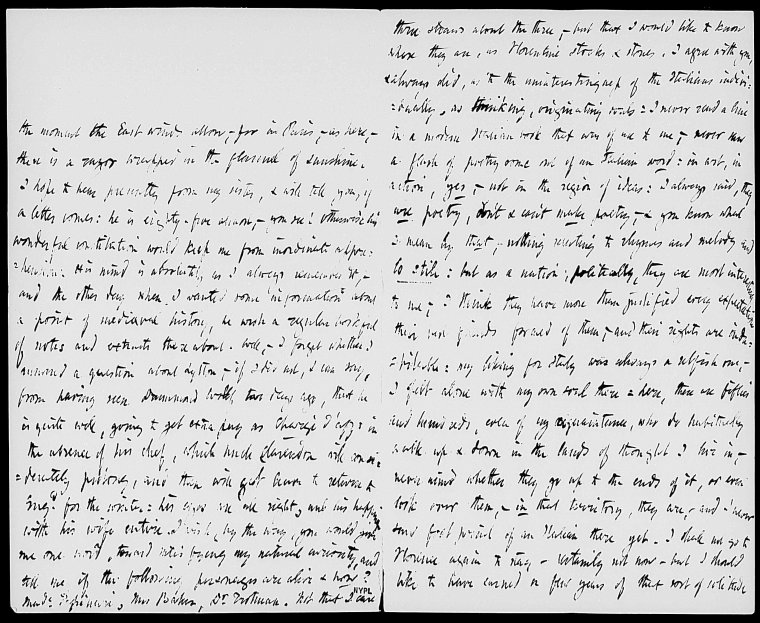 the moment the East winds allow - for in Paris, - as here, -
there is a razor wrapped in the flannel of sunshine.
I hope to hear presently from my sister, & will tell you, if
a letter comes: he is eighty-five almost, - you see! otherwise his
wonderful constitution would keep me from inordinate appre:
:hension. His mind is absolutely, as I always remember it, -
and the other day when I wanted some information about
a point of mediaeval history, he wrote a regular bookful
of notes and extracts thereabout. Well, - I forget whether I
answered a question about Lytton, - if I did not, I can say,
from having seen Drummond Wolff two days ago, that he
is quite well, going to get extra pay as Chargé d'aff: in
the absence of his chef, which uncle Clarendon will consi:
:derately prolong, and then will get leave to return to
Engd for the winter: his eyes are all right, and his happiness
with his wife entire. I wish, by the way, you would send
me one word, toward satisfying my natural curiosity, and
tell me if the following personages are alive & now?
Mad: Mrs Baker, Dr Trotman. Not that I care
NYPL
three straws about the three, - but that I would like to know
where they are, as Florentine stocks & stones. I agree with you,
& always did, as to the uninterestingness of the Italians indivi:
:dually, as thinking, originating souls: I never read a line
in a modern Italian book that was of use to me, - never saw
a flash of poetry come out of an Italian word: in art, in
action, yes, - not in the region of ideas: I always said, they
are poetry, don't & can't make poetry, - & you know what
I mean by that, - nothing relating to rhymes and melody and
lo stile: but as a nation, politically, they are most interesting
to me, - I think they have more than justified every expectation
their best friends formed of them, - and their rights are indis:
:putable: my liking for Italy was always a selfish one, -
I felt alone with my own soul there: here, there are fifties
and hundreds, even of my acquaintance, who do habitually
walk up & down in the lands of thought I live in, -
never mind whether they go up to the ends of it, or even
look over them, - in that territory, they are, - and I never
saw footprint of an Italian there yet. I shall not go to
Florence again to stay - certainly not now - but I should
like to have earned a few years of that sort of solitude